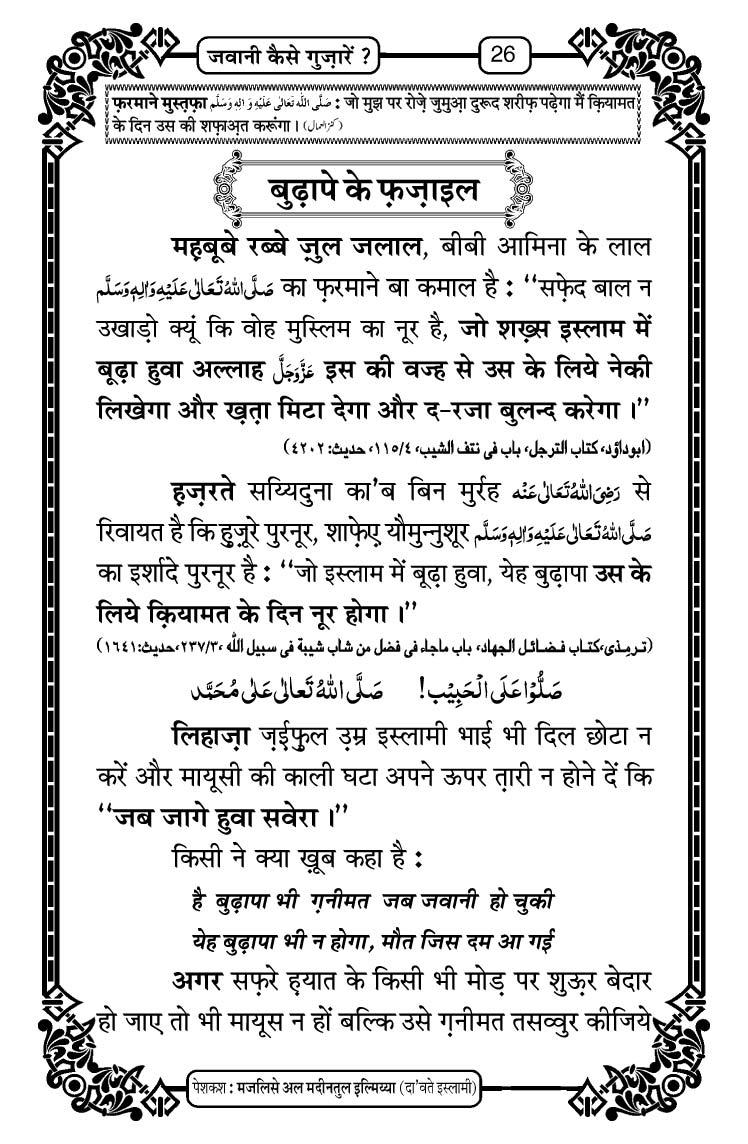 जवानी कैसे गुज़ारें ?
26
फ़रमाने मुस्त़फ़ा صَلَّى اللهُ تَعَالٰى عَلَيْهِ وَاٰلِهٖ وَسَلَّم : जो मुझ पर रोज़े जुमुआ़ दुरूद शरीफ़ पढ़ेगा मैं क़ियामत
के दिन उस की शफ़ाअ़त करूंगा । (کنزالعمال)
बुढ़ापे के फ़ज़ाइल
मह़बूबे रब्बे ज़ुल जलाल, बीबी आमिना के लाल
صَلَّى اللهُ تَعَالٰى عَلَيْهِ وَاٰلِهٖ وَسَلَّم का फ़रमाने बा कमाल है : ‘‘सफ़ेद बाल न
उखाड़ो क्यूं कि वोह मुस्लिम का नूर है, जो शख़्स इस्लाम में
बूढ़ा हुवा अल्लाह عَزَّوَجَلَّ इस की वज्ह से उस के लिये नेकी
लिखेगा और ख़त़ा मिटा देगा और द-रजा बुलन्द करेगा ।’’
(ابوداؤد، کتاب الترجل، باب فی نتف الشیب، ٤/١١٥، حدیث: ٤٢٠٢)
ह़ज़रते सय्यिदुना का’ब बिन मुर्रह رَضِیَ اللهُ تَعَالٰی عَنْه से
रिवायत है कि हु़ज़ूरे पुरनूर, शाफ़ेए़ यौमुन्नुशूर صَلَّى اللهُ تَعَالٰى عَلَيْهِ وَاٰلِهٖ وَسَلَّم
का इर्शादे पुरनूर है : ‘‘जो इस्लाम में बूढ़ा हुवा, येह बुढ़ापा उस के
लिये क़ियामत के दिन नूर होगा ।’’
(ترمذی، کتاب فضائل الجهاد، باب ماجاء فی فضل من شاب شیبة فی سبیل الله، ٣/٢٣٧، حدیث: ١٦٤١)
صَلُّوْا عَلَى الْحَبِيْب! صَلَّى اللهُ تَعَالٰى عَلٰى مُحَمَّد
लिहाज़ा ज़ई़फ़ुल उ़म्र इस्लामी भाई भी दिल छोटा न
करें और मायूसी की काली घटा अपने ऊपर त़ारी न होने दें कि
‘‘जब जागे हुवा सवेरा ।’’
किसी ने क्या ख़ूब कहा है :
है बुढ़ापा भी ग़नीमत जब जवानी हो चुकी
येह बुढ़ापा भी न होगा, मौत जिस दम आ गई
अगर सफ़रे ह़यात के किसी भी मोड़ पर शुऊ़र बेदार
हो जाए तो भी मायूस न हों बल्कि उसे ग़नीमत तसव्वुर कीजिये
पेशकश : मजलिसे अल मदीनतुल इ़ल्मिय्या (दा’वते इस्लामी)